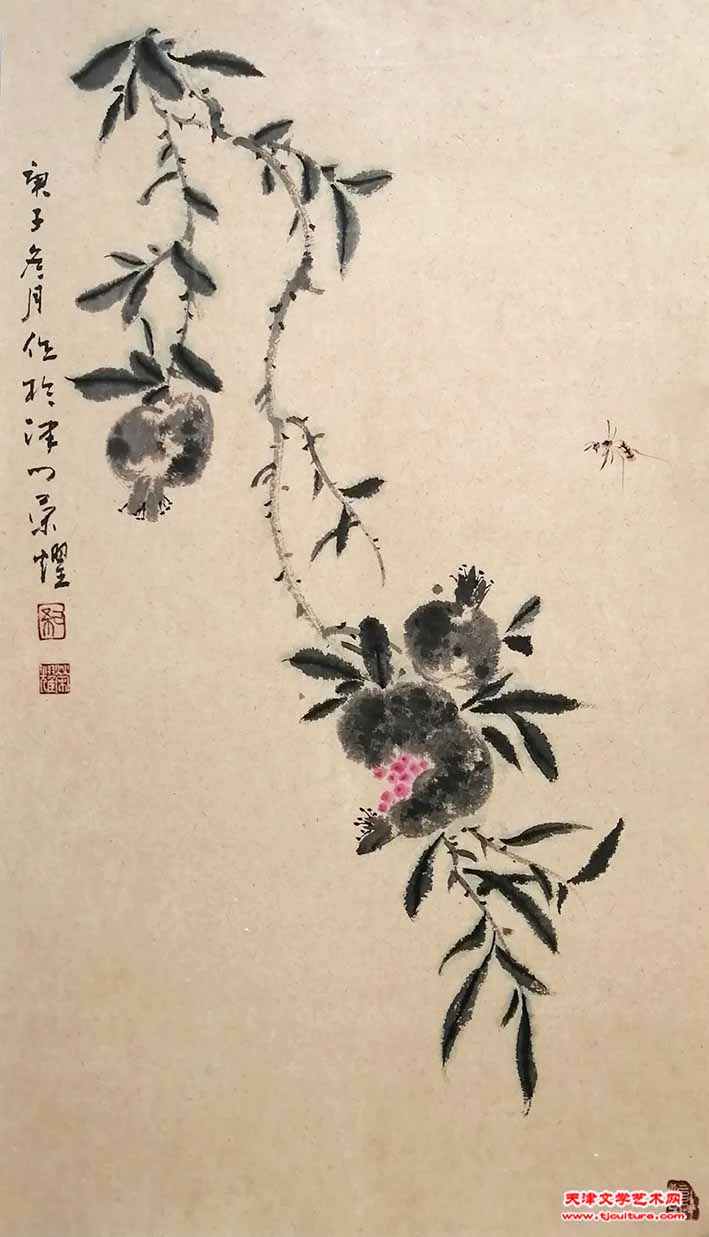 庚子冬月作於津门荣燿
天津文学艺术网
www.tjculture.com